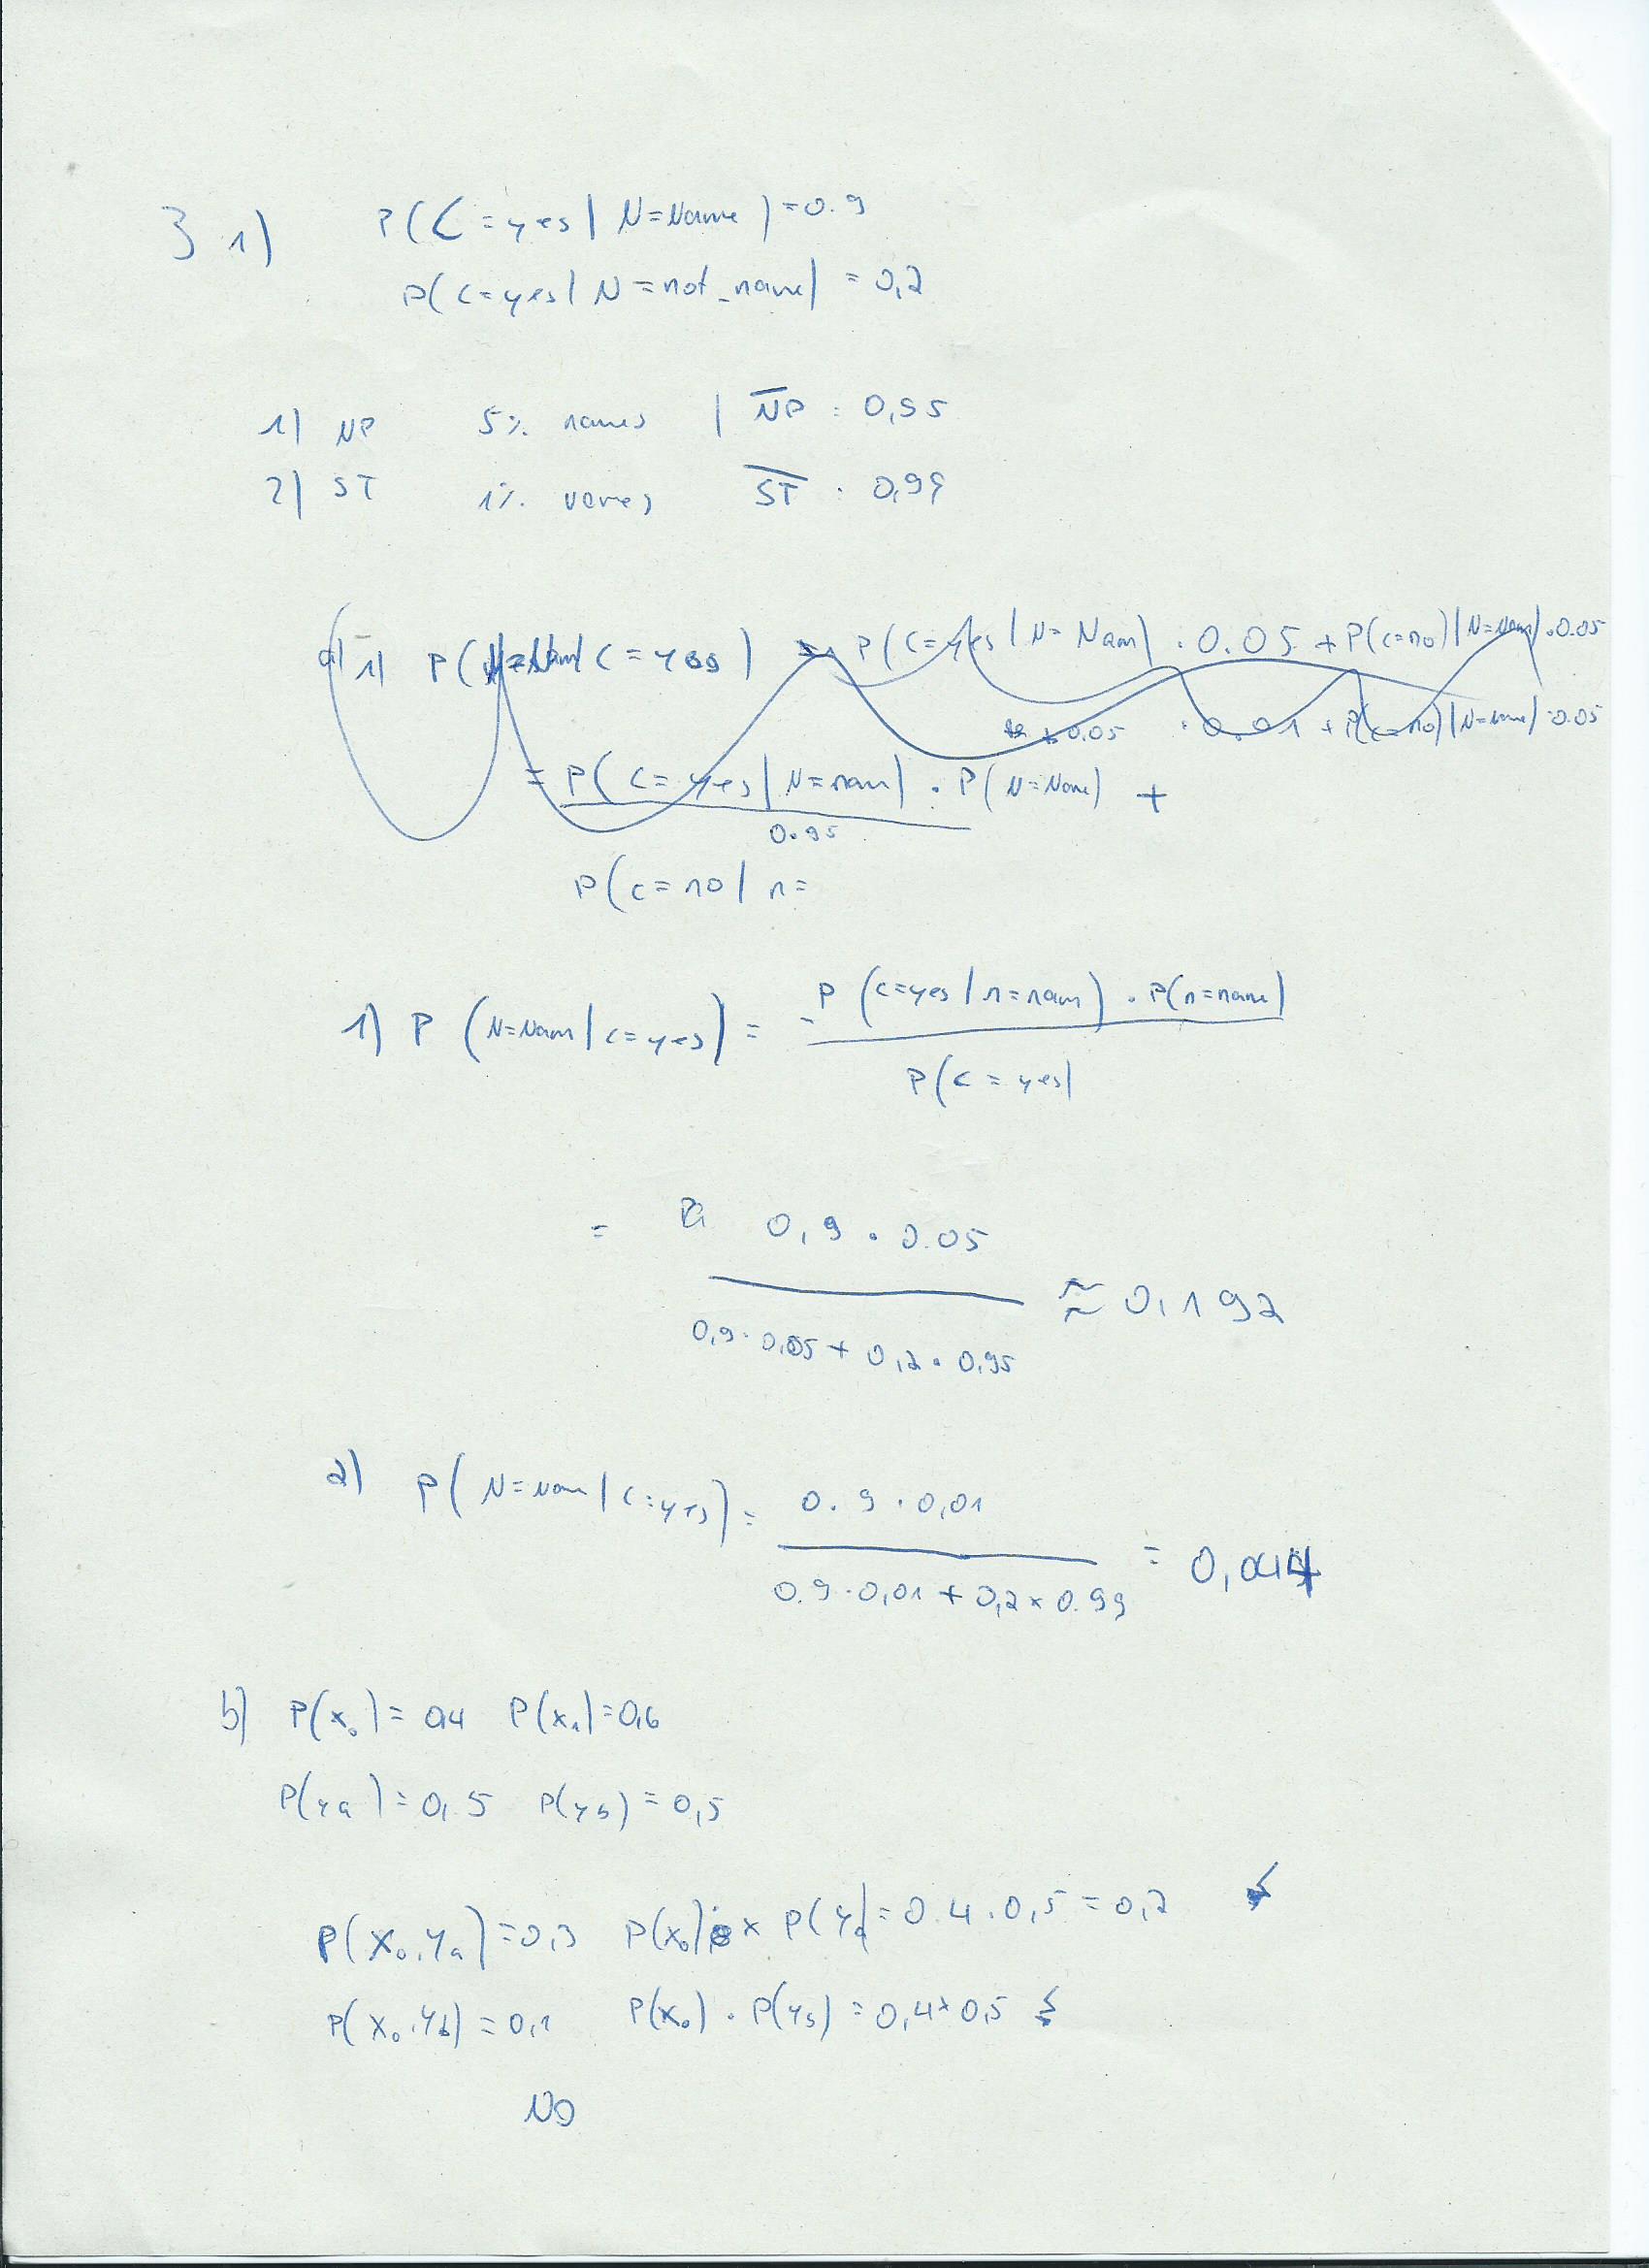 3 1) P(C=yes | N=Name) = 0.9
P(C=yes | N=not_name) = 0,2
1) NP 5% names | N̅P̅ : 0,95
2) ST 1% names S̅T̅ : 0,99
a) 1) P( | C=yes) = P(C=yes | N=Nam) · 0.05 + P(C=no) | N=Nam) · 0.05
+ 0.05 · 0.01 + P(C=no) | N=name) · 0.05
= P(C=yes | N=nam) · P(N=Name) +
0.95
P(C=no | n=
1) P (N=Nam | C=yes) = P (C=yes | n=nam) · P(n=name)
P(C=yes)
= 0,9 · 0.05
≈ 0,192
0,9 · 0,05 + 0,2 · 0,95
2) P(N=Nam | C=yes) = 0.9 · 0,01
= 0,044
0.9 · 0,01 + 0,2 x 0.99
b) P(x₀) = 0,4 P(x₁) = 0,6
P(ya) = 0,5 P(yb) = 0,5
P(x₀,ya) = 0,3 P(x₀) x P(ya) = 0.4 · 0,5 = 0,2
P(x₀,yb) = 0,1 P(x₀) · P(yb) = 0,4 x 0,5
NO